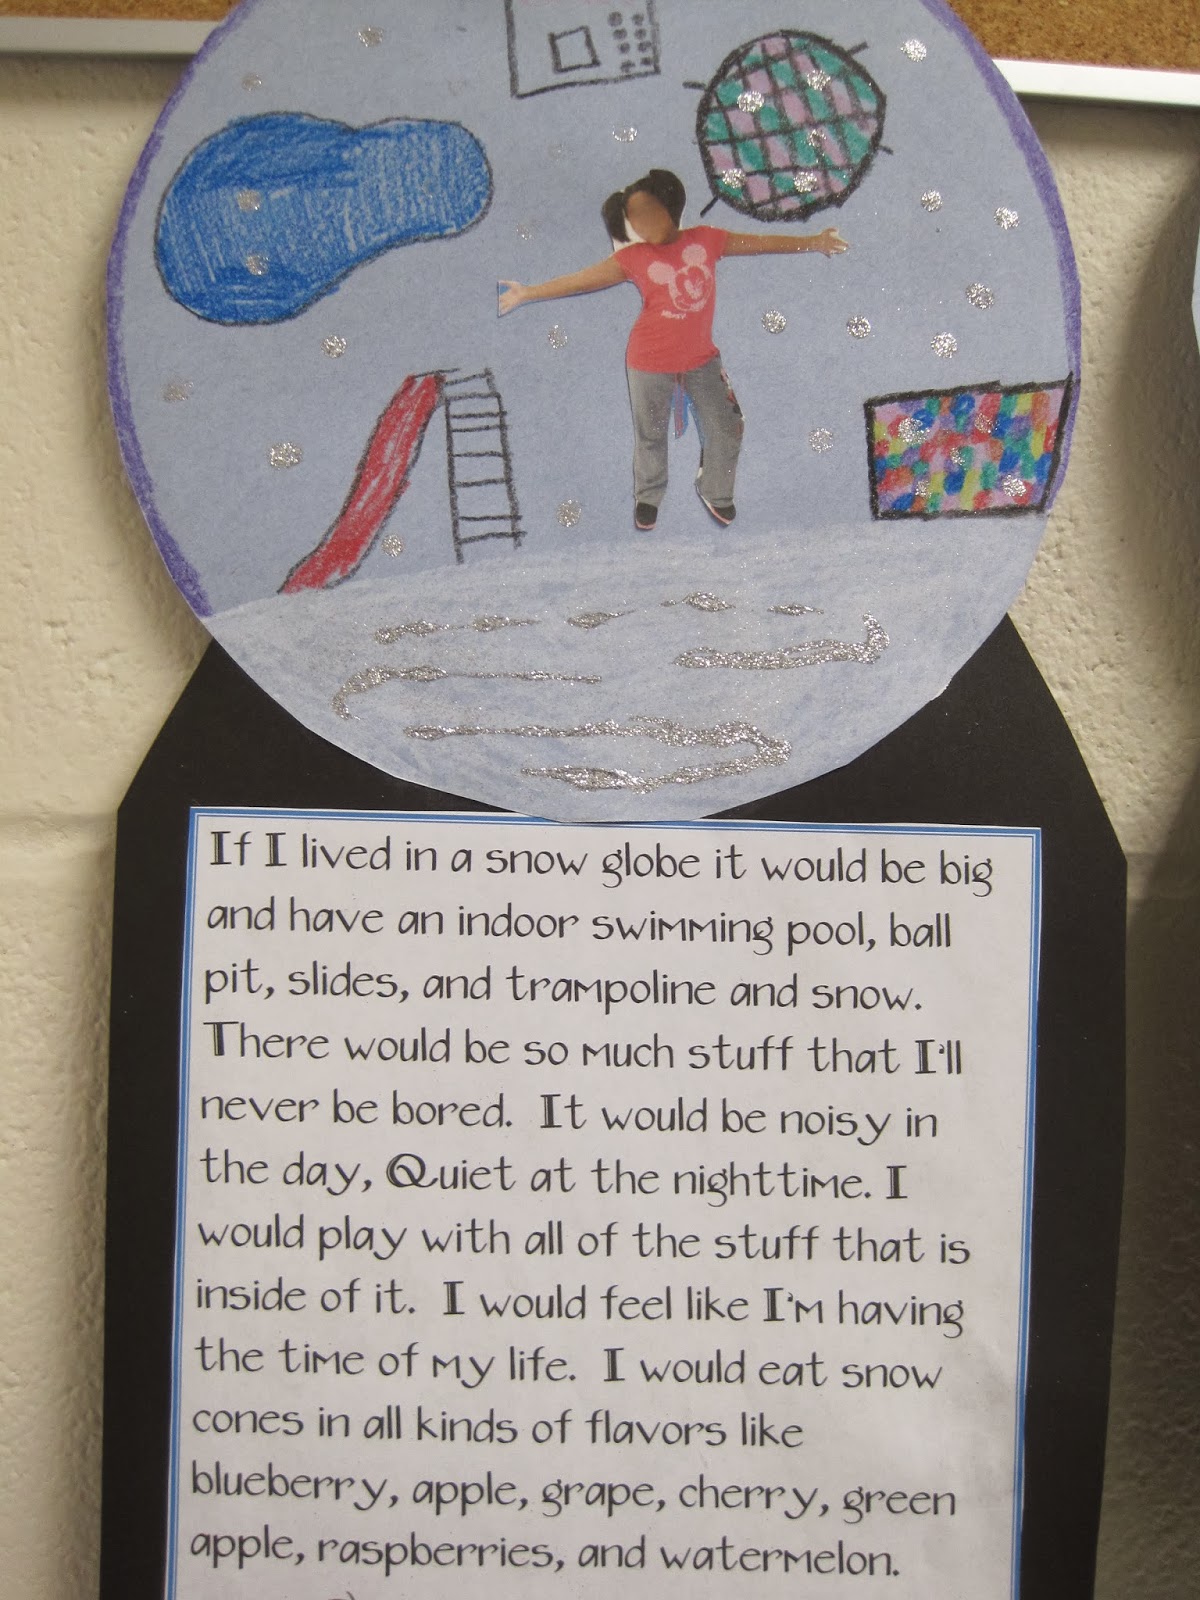 If I lived in a snow globe it would be big
and have an indoor swimming pool, ball
pit, slides, and trampoline and snow.
There would be so much stuff that I'll
never be bored. It would be noisy in
the day, Quiet at the nighttime. I
would play with all of the stuff that is
inside of it. I would feel like I'm having
the time of my life. I would eat snow
cones in all kinds of flavors like
blueberry, apple, grape, cherry, green
apple, raspberries, and watermelon.